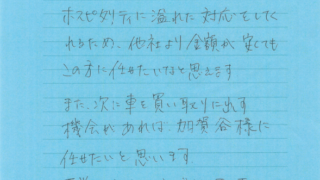 ホスピタリティに溢れた対応をしてく
れるため、他社より金額が安くても
この方に任せたいなと思えます
また、次に車を買い取りに出す
機会があれば、加賀谷様に
任せたいと思います